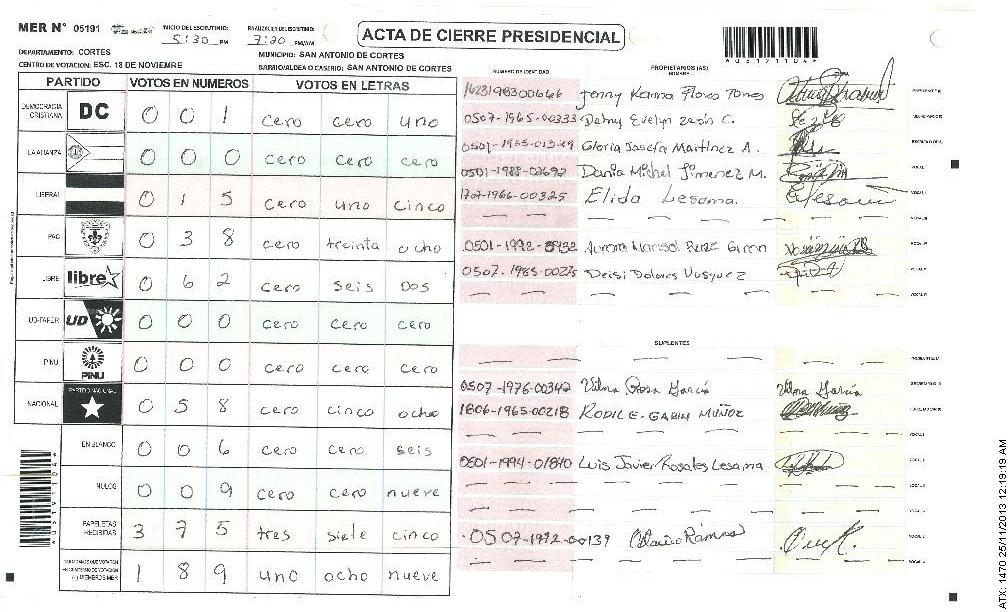 MER N° 05191
INICIO DEL ESCRUTINIO: 5:30 PM
FINALIZACION DEL ESCRUTINIO: 7:20 PM/AM
ACTA DE CIERRE PRESIDENCIAL
*05191104*
DEPARTAMENTO: CORTES
MUNICIPIO: SAN ANTONIO DE CORTES
CENTRO DE VOTACION: ESC. 18 DE NOVIEMRE
BARRIO/ALDEA O CASERIO: SAN ANTONIO DE CORTES
PARTIDO VOTOS EN NUMEROS VOTOS EN LETRAS
DEMOCRACIA CRISTIANA DC 0 0 1 cero cero uno
LA ALIANZA 0 0 0 cero cero cero
LIBERAL 0 1 5 cero uno cinco
PAC 0 3 8 cero treinta ocho
LIBRE libre 0 6 2 cero seis dos
UD-FAPER UD 0 0 0 cero cero cero
PINU PINU 0 0 0 cero cero cero
NACIONAL PARTIDO NACIONAL 0 5 8 cero cinco ocho
EN BLANCO 0 0 6 cero cero seis
NULOS 0 0 9 cero cero nueve
PAPELETAS RECIBIDAS 3 7 5 tres siete cinco
MIEMBROS MER 1 8 9 uno ocho nueve
NUMERO DE IDENTIDAD PROPIETARIOS (AS) NOMBRE
Jenny Karina Flores
0507-1965-00333 Evelyn C.
Gloria Josefa Martinez A.
0501-1988-02692 Dania Michel Jimenez M.
1707-1966-00325 Elida Lesama.
Aurora Marisol Perez Giron
0507-1985-00275 Deisi Dolores Vasquez
SUPLENTES
0507-1976-00342 Vilma Rosa García Vilma García
1806-1965-00218 MUÑOZ
0501-1994-01840 Luis Javier Rosales Lesama
0507-1972-00139 Ramos
ATX: 1470 25/11/2013 12:19:19 AM